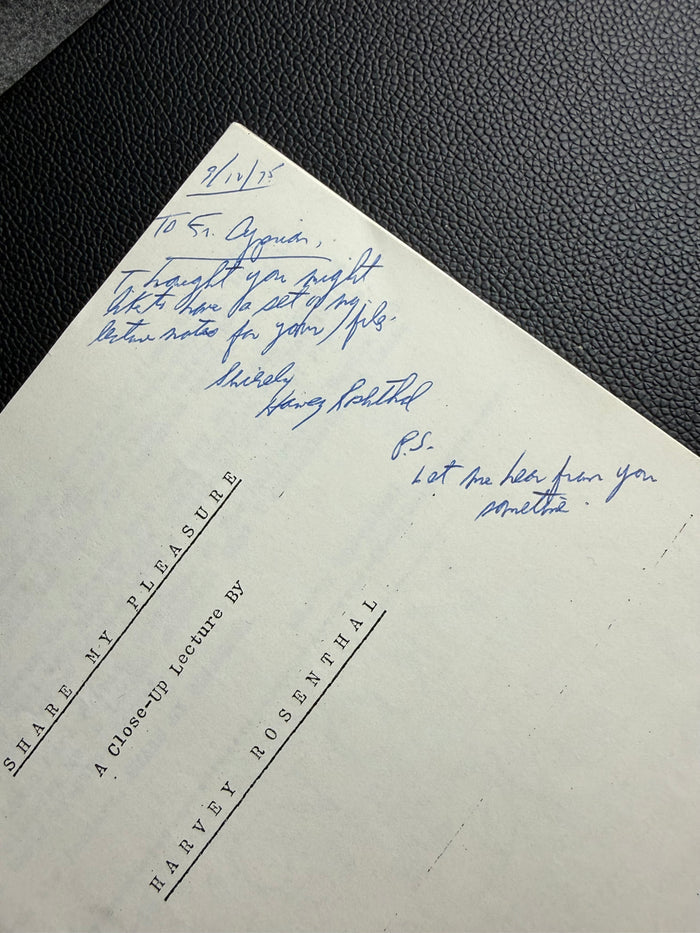 9/12/75
To Fr. Cyprian,
Thought you might
like to have a set of my
lecture notes for your files.
Sincerely
Harvey Rosenthal
P.S.
Let me hear from you
sometime.
SHARE MY PLEASURE
A Close-Up Lecture By
HARVEY ROSENTHAL